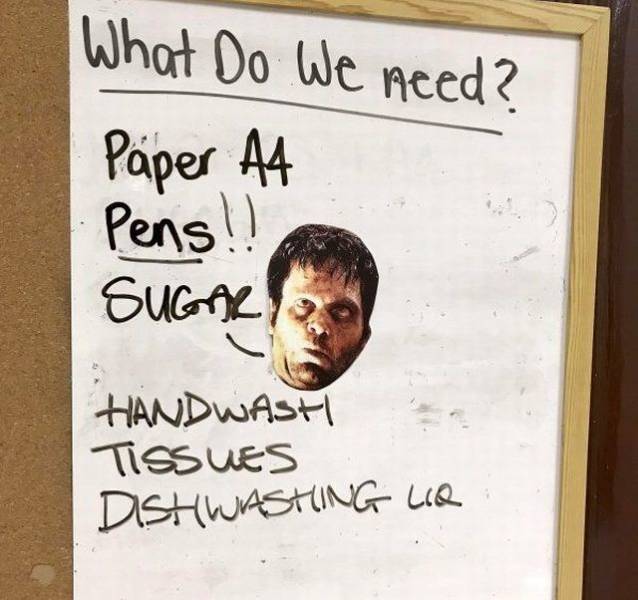 What Do We need?
Paper A4
Pens!!
SUGAR
HANDWASH
TISSUES
DISHWASHING LIQ